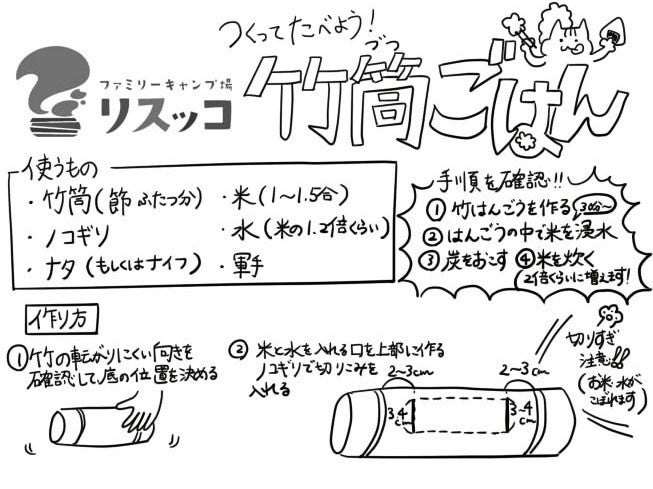 つくってたべよう!
づつ
竹筒ごはん
ファミリーキャンプ場
リスッコ
使うもの
・竹筒(節ふたつ分)
・ノコギリ
・ナタ(もしくはナイフ)
・米(1〜1.5合)
・水(米の1.2倍くらい)
・軍手
手順を確認!!
①竹はんごうを作る
②はんごうの中で米を浸水
30分〜
③炭をおこす ④米を炊く
2倍くらいに増えます!
作り方
①竹の転がりにくい向きを
確認して底の位置を決める
②米と水を入れる口を上部に作る
ノコギリで切りこみを
入れる
2〜3cm
2〜3cm
3〜4
cm
3〜4
cm
切りすぎ
注意!!
(お米・水が
こぼれます)